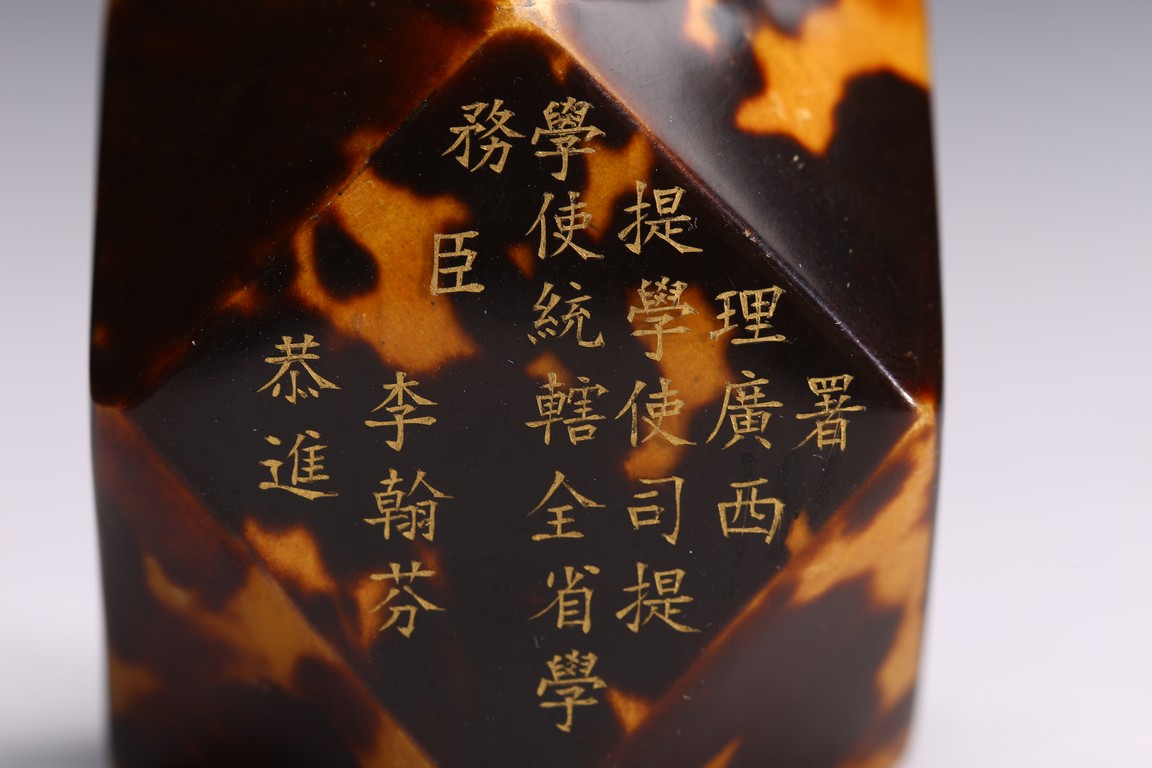 署
理廣西
提學使司提
學使統轄全省學
務
臣
李翰芬
恭進